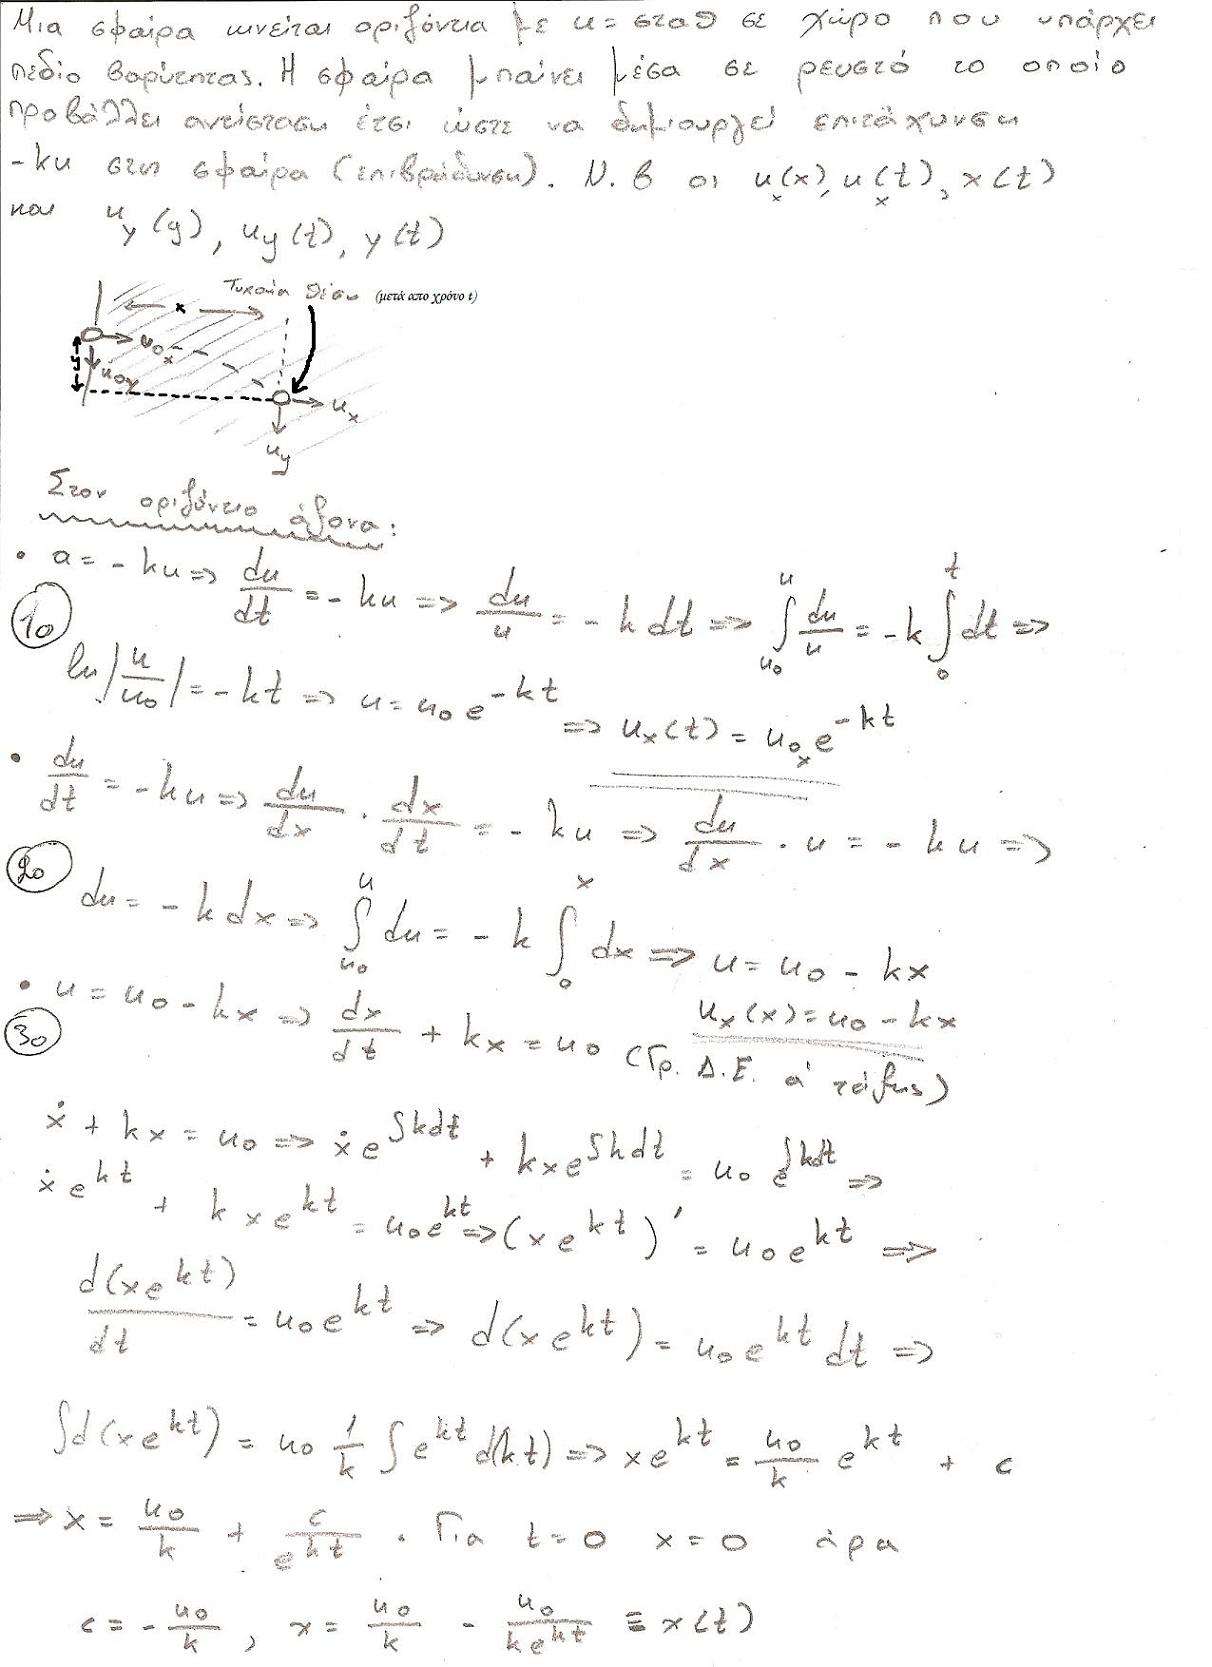 Μια σφαίρα κινείται οριζόντια με u = σταθ σε χώρο που υπάρχει
πεδίο βαρύτητας. Η σφαίρα μπαίνει μέσα σε ρευστό το οποίο
προβάλλει αντίσταση έτσι ώστε να δημιουργεί επιτάχυνση
-ku στη σφαίρα (επιβράδυνση). Ν.β οι u_x(x), u_x(t), x(t)
και u_y(y), u_y(t), y(t)
Τυχαία θέση (μετά απο χρόνο t)
x
u_{0x}
y
u_{0y}
u_x
u_y
Στον οριζόντιο άξονα:
• a = -ku => du/dt = -ku => du/u = -k dt => ∫_{u_0}^{u} du/u = -k ∫_0^t dt =>
1ο
ln|u/u_0| = -kt => u = u_0 e^{-kt} => u_x(t) = u_{0x} e^{-kt}
• du/dt = -ku => du/dx · dx/dt = -ku => du/dx · u = -ku =>
2ο
du = -k dx => ∫_{u_0}^{u} du = -k ∫_0^x dx => u = u_0 - kx
u_x(x) = u_0 - kx
• u = u_0 - kx => dx/dt + kx = u_0 (Γρ. Δ.Ε. α' τάξης)
3ο
ẋ + kx = u_0 => ẋ e^{∫kdt} + kx e^{∫kdt} = u_0 e^{∫kdt} =>
ẋ e^{kt} + k x e^{kt} = u_0 e^{kt} => (x e^{kt})' = u_0 e^{kt} =>
d(x e^{kt})/dt = u_0 e^{kt} => d(x e^{kt}) = u_0 e^{kt} dt =>
∫d(x e^{kt}) = u_0 1/k ∫ e^{kt} d(kt) => x e^{kt} = u_0/k e^{kt} + c
=> x = u_0/k + c/e^{kt} . Για t = 0 x = 0 άρα
c = -u_0/k , x = u_0/k - u_0/(k e^{kt}) ≡ x(t)